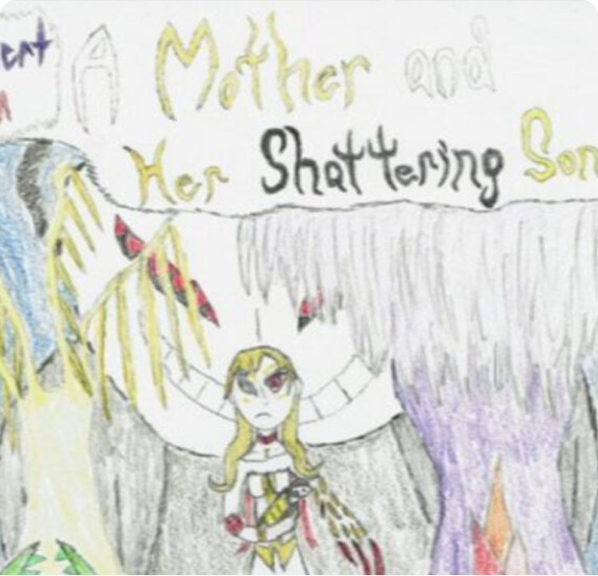 A Mother and
Her Shattering Son